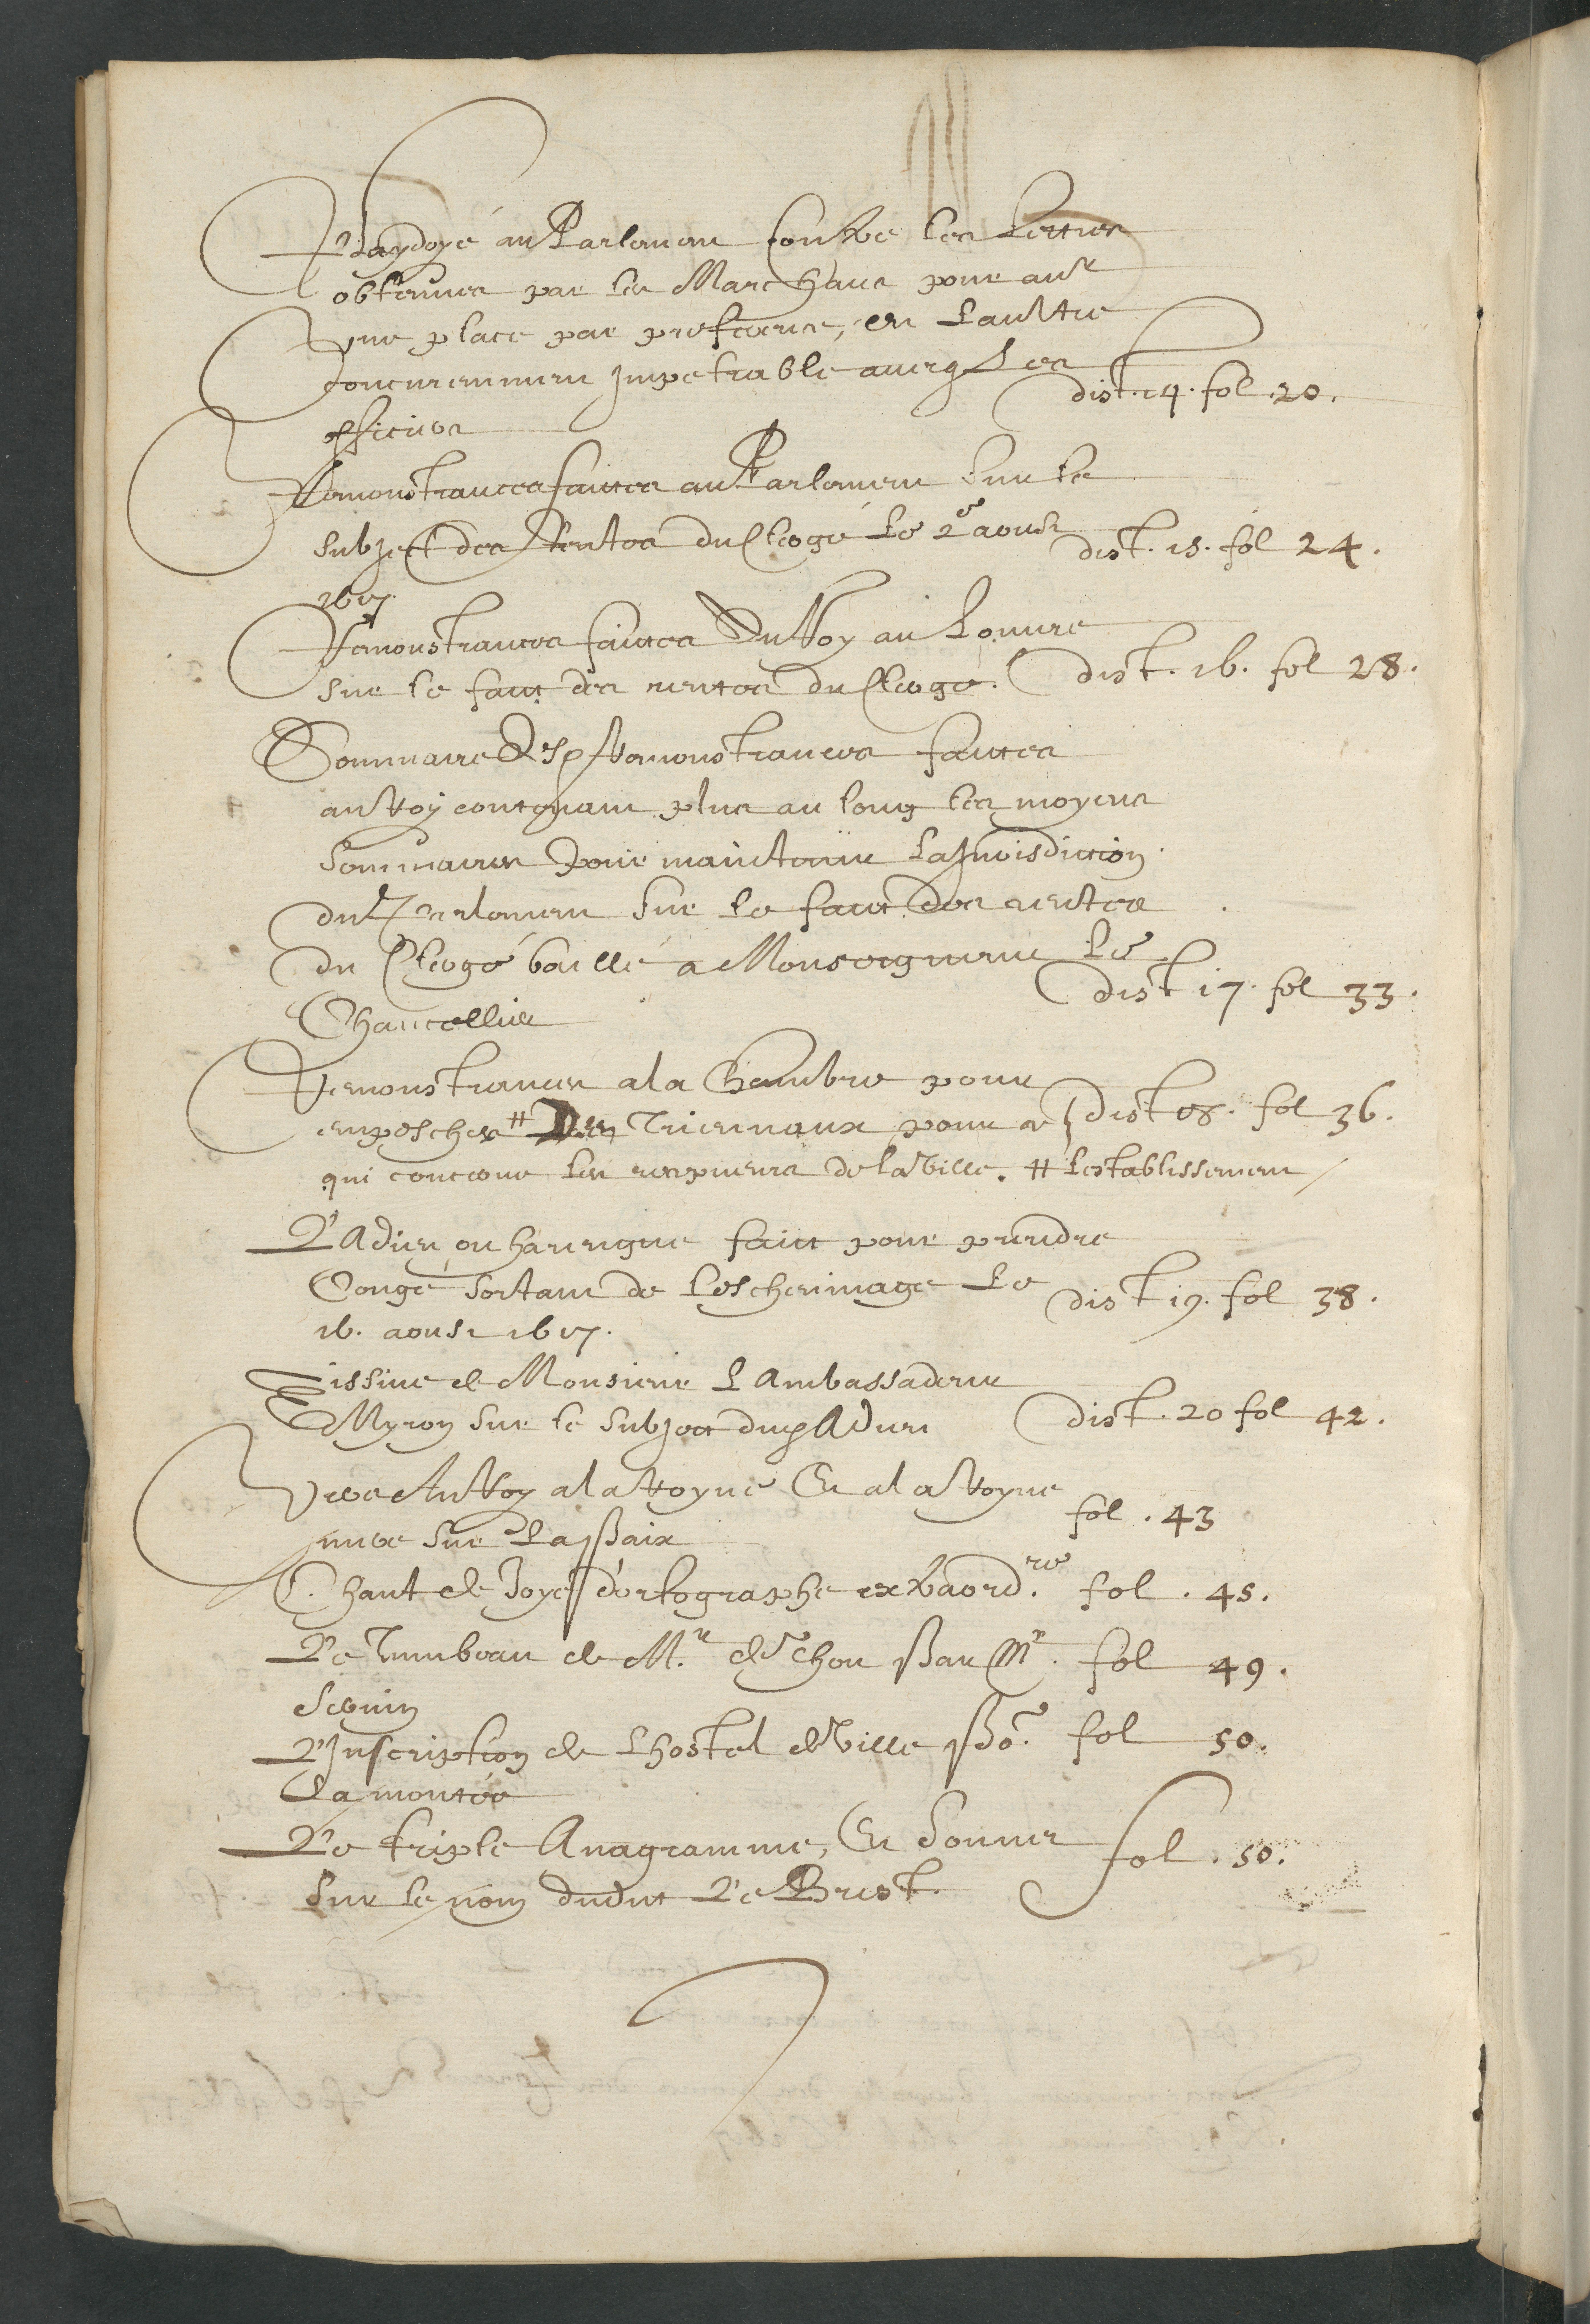 Playdoyé au Parlement contre les Lettres
obtenues par les Marchans pour avr
une place par preference, en Laultre
concuremment Impetrable avecq Les
officiers
dist. 14. fol 20.
Remonstrances faictes au Parlement Sur le
subject des Rentes du Clergé Le 2e aoust
1617.
dist. 15. fol 24.
Remonstrances faictes Au Roy au Louvre
sur le faict des rentes du Clergé.
dist. 16. fol 28.
Sommaire Desd Remonstrances faictes
au Roy contenant plus au long les moyens
Sommaires Pour maintenir La Jurisdiction
du Parlement Sur le faict des rentes
du Clergé baillé a Monseigneur Le
Chancellier
dist 17. fol 33.
Remonstrances a la Chambre pour
empescher # Des Triennaux pour ce
dist 18. fol 36.
qui concerne les recepveurs de la Ville. # Lestablissement
L'Adieu ou harengue faict pour prendre
Congé sortant de Leschevinage Le
16. aoust 1617.
dist 19. fol 38.
Missive de Monsieur L'Ambassadeur
Myron sur le Subject dud Adieu
dist. 20 fol 42.
Vers Au Roy a la Royne Et a la Royne
mere sur La Paix
fol. 43
Chant de Joye d'ortographe extraord.re
fol. 45.
Le Tumbeau de Mr. de chou Par Mr.
Sevin
fol 49.
L'Inscription de Lhostel de Ville Po.r
La montée
fol 50.
Le triple Anagramme, Et Sonnet
Sur le nom dudict Le Prest.
fol. 50.